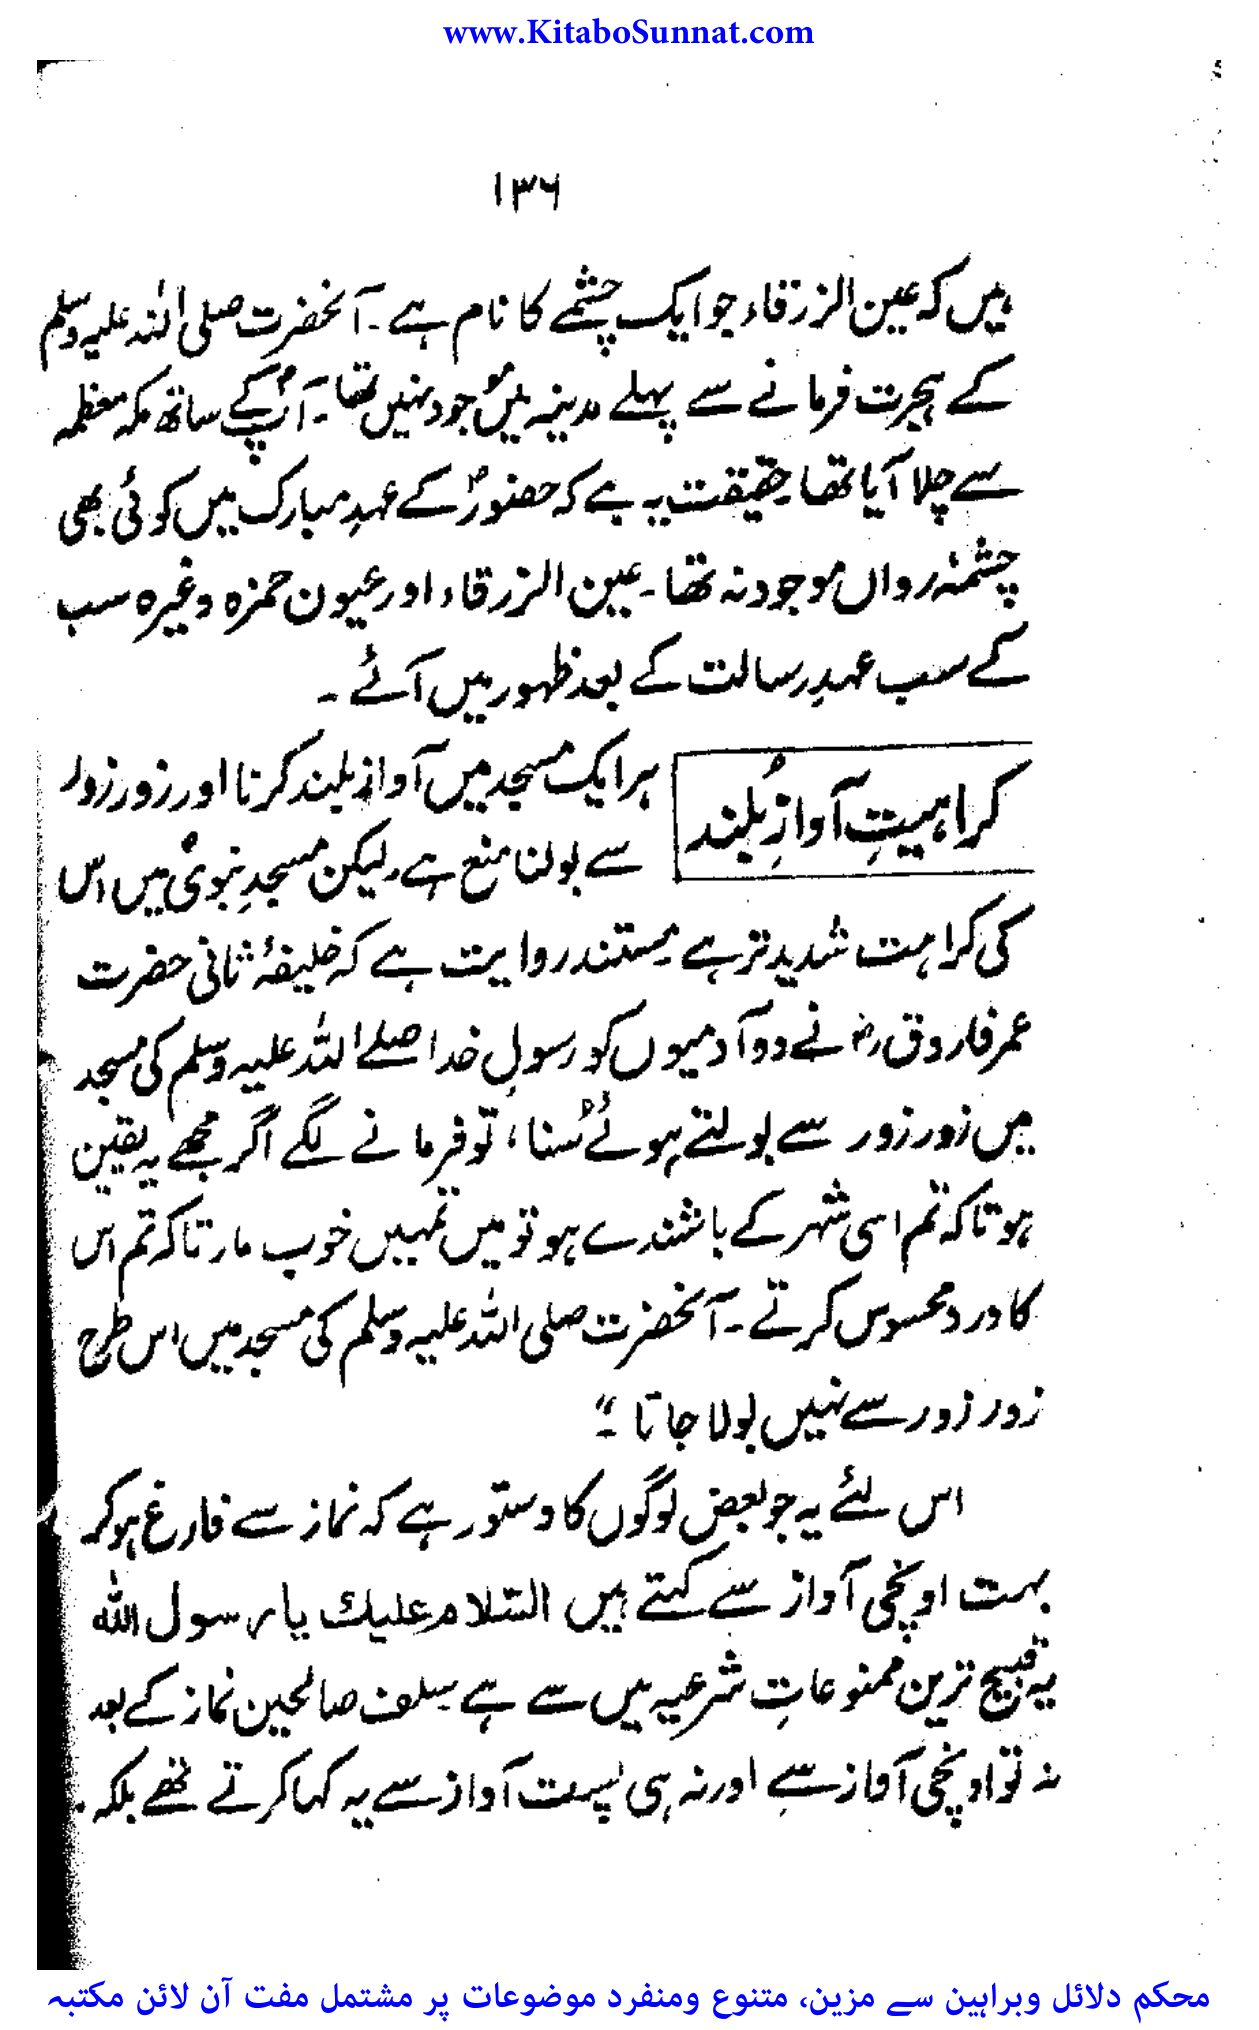 www.KitaboSunnat.com
۱۳۶
ہیں کہ عین الزرقاء جو ایک چشمے کا نام ہے۔ آنحضرت صلی اللہ علیہ وسلم
کے ہجرت فرمانے سے پہلے مدینہ میں موجود نہیں تھا۔ آپؐ کے ساتھ مکہ معظمہ
سے چلا آیا تھا۔ حقیقت یہ ہے کہ حضورؐ کے عہدِ مبارک میں کوئی بھی
چشمۂ رواں موجود نہ تھا۔ عین الزرقاء اور عیون حمزہ وغیرہ سب
کے سب عہدِ رسالت کے بعد ظہور میں آئے۔
کراہیتِ آوازِ بُلند
ہر ایک مسجد میں آواز بلند کرنا اور زور زور
سے بولنا منع ہے۔ لیکن مسجدِ نبویؐ میں اس
کی کراہت شدید تر ہے۔ مستند روایت ہے کہ خلیفۂ ثانی حضرت
عمر فاروق رضؓ نے دو آدمیوں کو رسولِ خدا صلے اللہ علیہ وسلم کی مسجد
میں زور زور سے بولتے ہوئے سُنا، تو فرمانے لگے اگر مجھے یہ یقین
ہوتا کہ تم اسی شہر کے باشندے ہو تو میں تمہیں خوب مارتا کہ تم اس
کا درد محسوس کرتے۔ آنحضرت صلی اللہ علیہ وسلم کی مسجد میں اس طرح
زور زور سے نہیں بولا جاتا۔"
اس لئے یہ جو بعض لوگوں کا دستور ہے کہ نماز سے فارغ ہو کر
بہت اونچی آواز سے کہتے ہیں السّلام علیك یا رسول اللہ
یہ قبیح ترین ممنوعاتِ شرعیہ میں سے ہے۔ سلف صالحین نماز کے بعد
نہ تو اونچی آواز سے اور نہ ہی پست آواز سے یہ کہا کرتے تھے بلکہ
محکم دلائل وبراہین سے مزین، متنوع ومنفرد موضوعات پر مشتمل مفت آن لائن مکتبہ